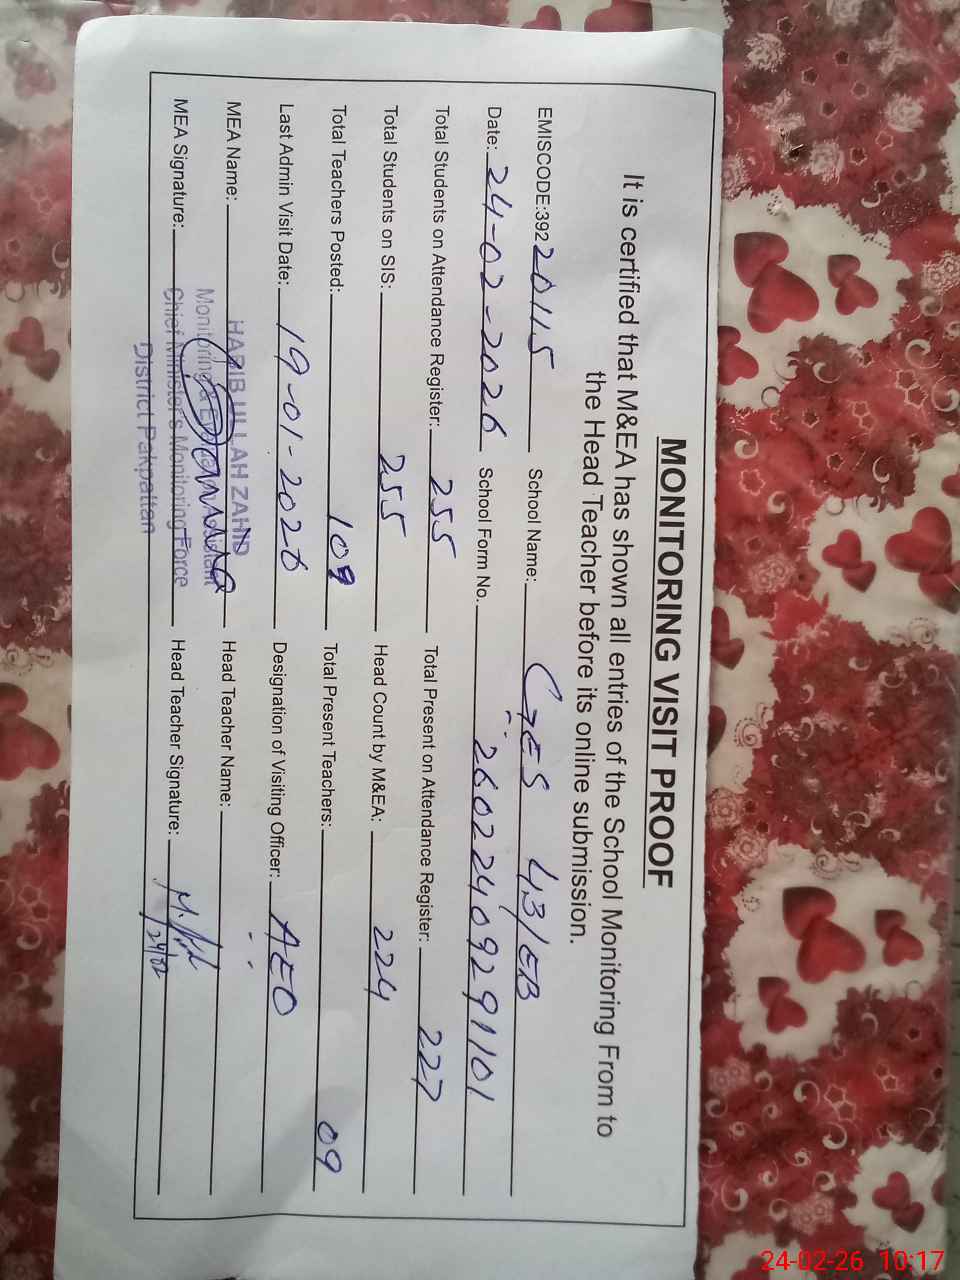 MONITORING VISIT PROOF
It is certified that M&EA has shown all entries of the School Monitoring From to
the Head Teacher before its online submission.
EMISCODE:39220115 School Name: GES 43/EB
Date: 24-02-2026 School Form No. 26022409291101
Total Students on Attendance Register: 255 Total Present on Attendance Register: 227
Total Students on SIS: 255 Head Count by M&EA: 224
Total Teachers Posted: 109 Total Present Teachers: 09
Last Admin Visit Date: 19-01-2026 Designation of Visiting Officer: AEO
MEA Name: HABIB ULLAH ZAHID Head Teacher Name:
Monitoring & Assistant
MEA Signature: Chief Minister's Monitoring Force Head Teacher Signature: 24/02
District Pakpattan
24-02-26 10:17